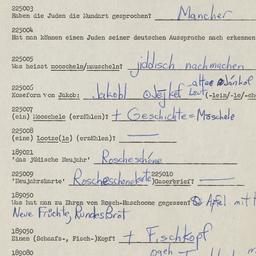 225003
Haben die Juden die Mundart gesprochen? Mancher
225004
Hat man können einen Juden seiner deutschen Aussprache nach erkennen
225005
Was heisst mooscheln/muuscheln? jiddisch nachmachen
225006
Koseform von Jakob: Jakobl (-lein/-le/-che
225007
(ein) Mooschele (erzählen)? + Geschichte = Moschele
225008
(eine) Lootze(le) (erzählen)? —
189021
'das jüdische Neujahr' Roscheschone
225009 225010
'Neujahrskarte' Roscheschonekarte Gauerbrief? —
189050
Was hat man zu Ehren von Rosch-Haschoone gegessen? Apfel mit H
Neue Früchte, rundes Brot
189050
Einen (Schaafs-, Fisch-)Kopf? + Fischkopf
189080